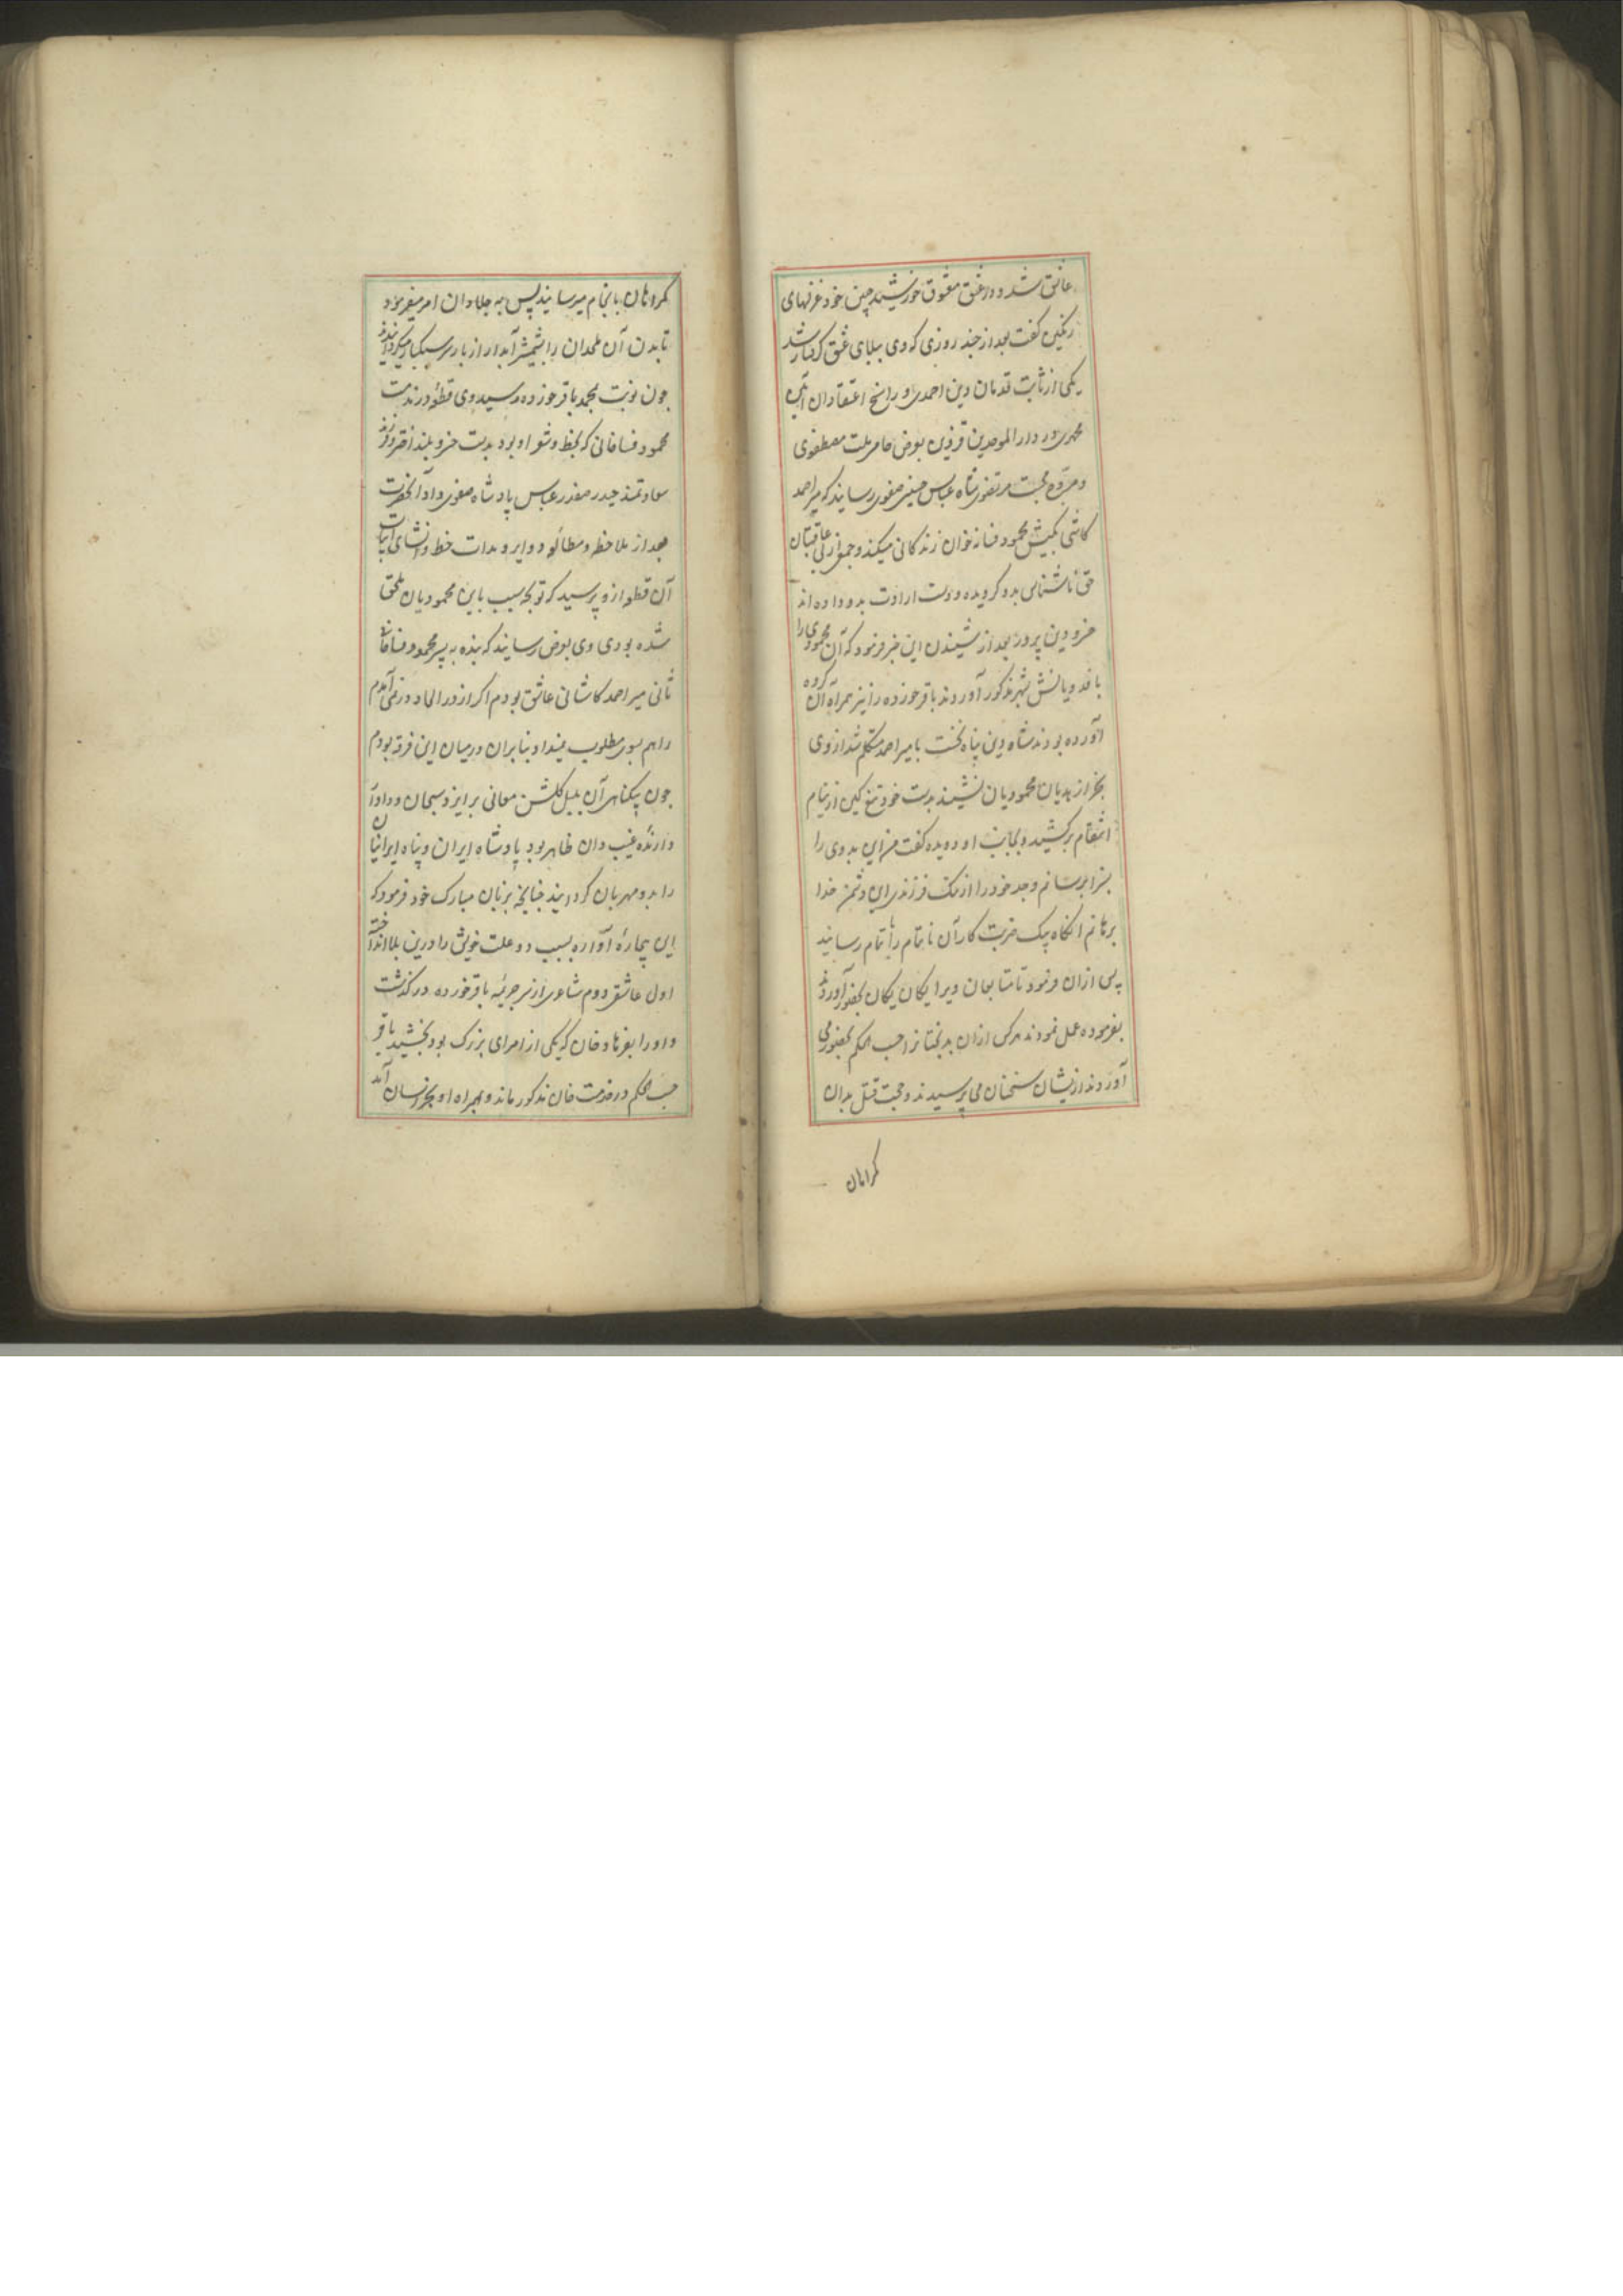 عاشق شد و در عشق معشوق خورشید جبین خود غزلهای
رنگین گفت بعد از چند روزی که وی ببلای عشق گرفتار شد
یکی از ثابت قدمان دین احمدی و راسخ اعتقادان آئین
محمدی در دار الموحدین قزوین بعرض حامی ملت مصطفوی
و مروج مرتضوی شاه عباس حسینی صفوی رسانید که میر احمد
کاشی بکیش محمود فسانه خوان زندگانی میکند و جمعی از بی عاقبتان
حق ناشناس بدو گرویده و دست ارادت بدو داده اند
خسرو دین پرور بعد از شنیدن این خبر فرمود که آن محمودی را
با فدویانش بشهر مذکور آوردند باقر خورده را نیز همراه آن گروه
آورده بودند شاه دین پناه نخست با میر احمد متکلم شد از وی
بجز از هذیان محمودیان نشنید بدست خود تیغ کین از نیام
انتقام برکشید و بجانب او دویده گفت من این بد وی را
بسزا برسانم و جد خود را از ننگ فرزندی این دشمن خدا
برهانم آنگاه بیک ضربت کار آن ناتمام را تمام رسانید
پس از آن فرمود تا متابعان ویرا یکان یکان بحضور آوردند
بفرموده عمل نمودند هر کس از آن بدبختانرا حسب الحکم بحضور می
آوردند از یشان سخنان می پرسیدند و حجت قتل بدان
گمراهان
گمراهان بانجام میرسانیدند پس به جلادان امر میفرمود
تا بدن آن ملحدان را بشمشیر آبدار از بار سر سبکبار میگردانیدند
چون نوبت بمحمد باقر خورده رسید وی قطعه در مذمت
محمود فسافانی که بخط و شعر او بود بدست خسرو بلند اختر و فرزند
سعادتمند حیدر صفدر عباس پادشاه صفوی داد آنحضرت
بعد از ملاحظه و مطالعه دوایر و مدات خط و انشای ابیات
آن قطعه از و پرسید که تو بچه سبب باین محمودیان ملحق
شده بودی وی بعرض رسانید که بنده به پسر محمود فسافانی
ثانی میر احمد کاشانی عاشق بودم اگر از در الحاد در نمی آمدم
راهم بسوی مطلوب نمیداد بنا بران در میان این فرقه بودم
چون بیگناهی آن بلبل گلشن معانی بر ایزد سبحان و دادار
دارنده غیب دان ظاهر بود پادشاه ایران و پناه ایرانیان
را بدو مهربان گردانید چنانچه بزبان مبارک خود فرمود که
این بیچاره آواره بسبب دو علت خویش را درین بلا انداخته
اول عاشقی دوم شاعری از سر جریمه باقر خورده در گذشت
و او را بفرهاد خان که یکی از امرای بزرگ بود بخشید باقر
حسب الحکم در خدمت خان مذکور ماند و همراه او بخراسان آمد